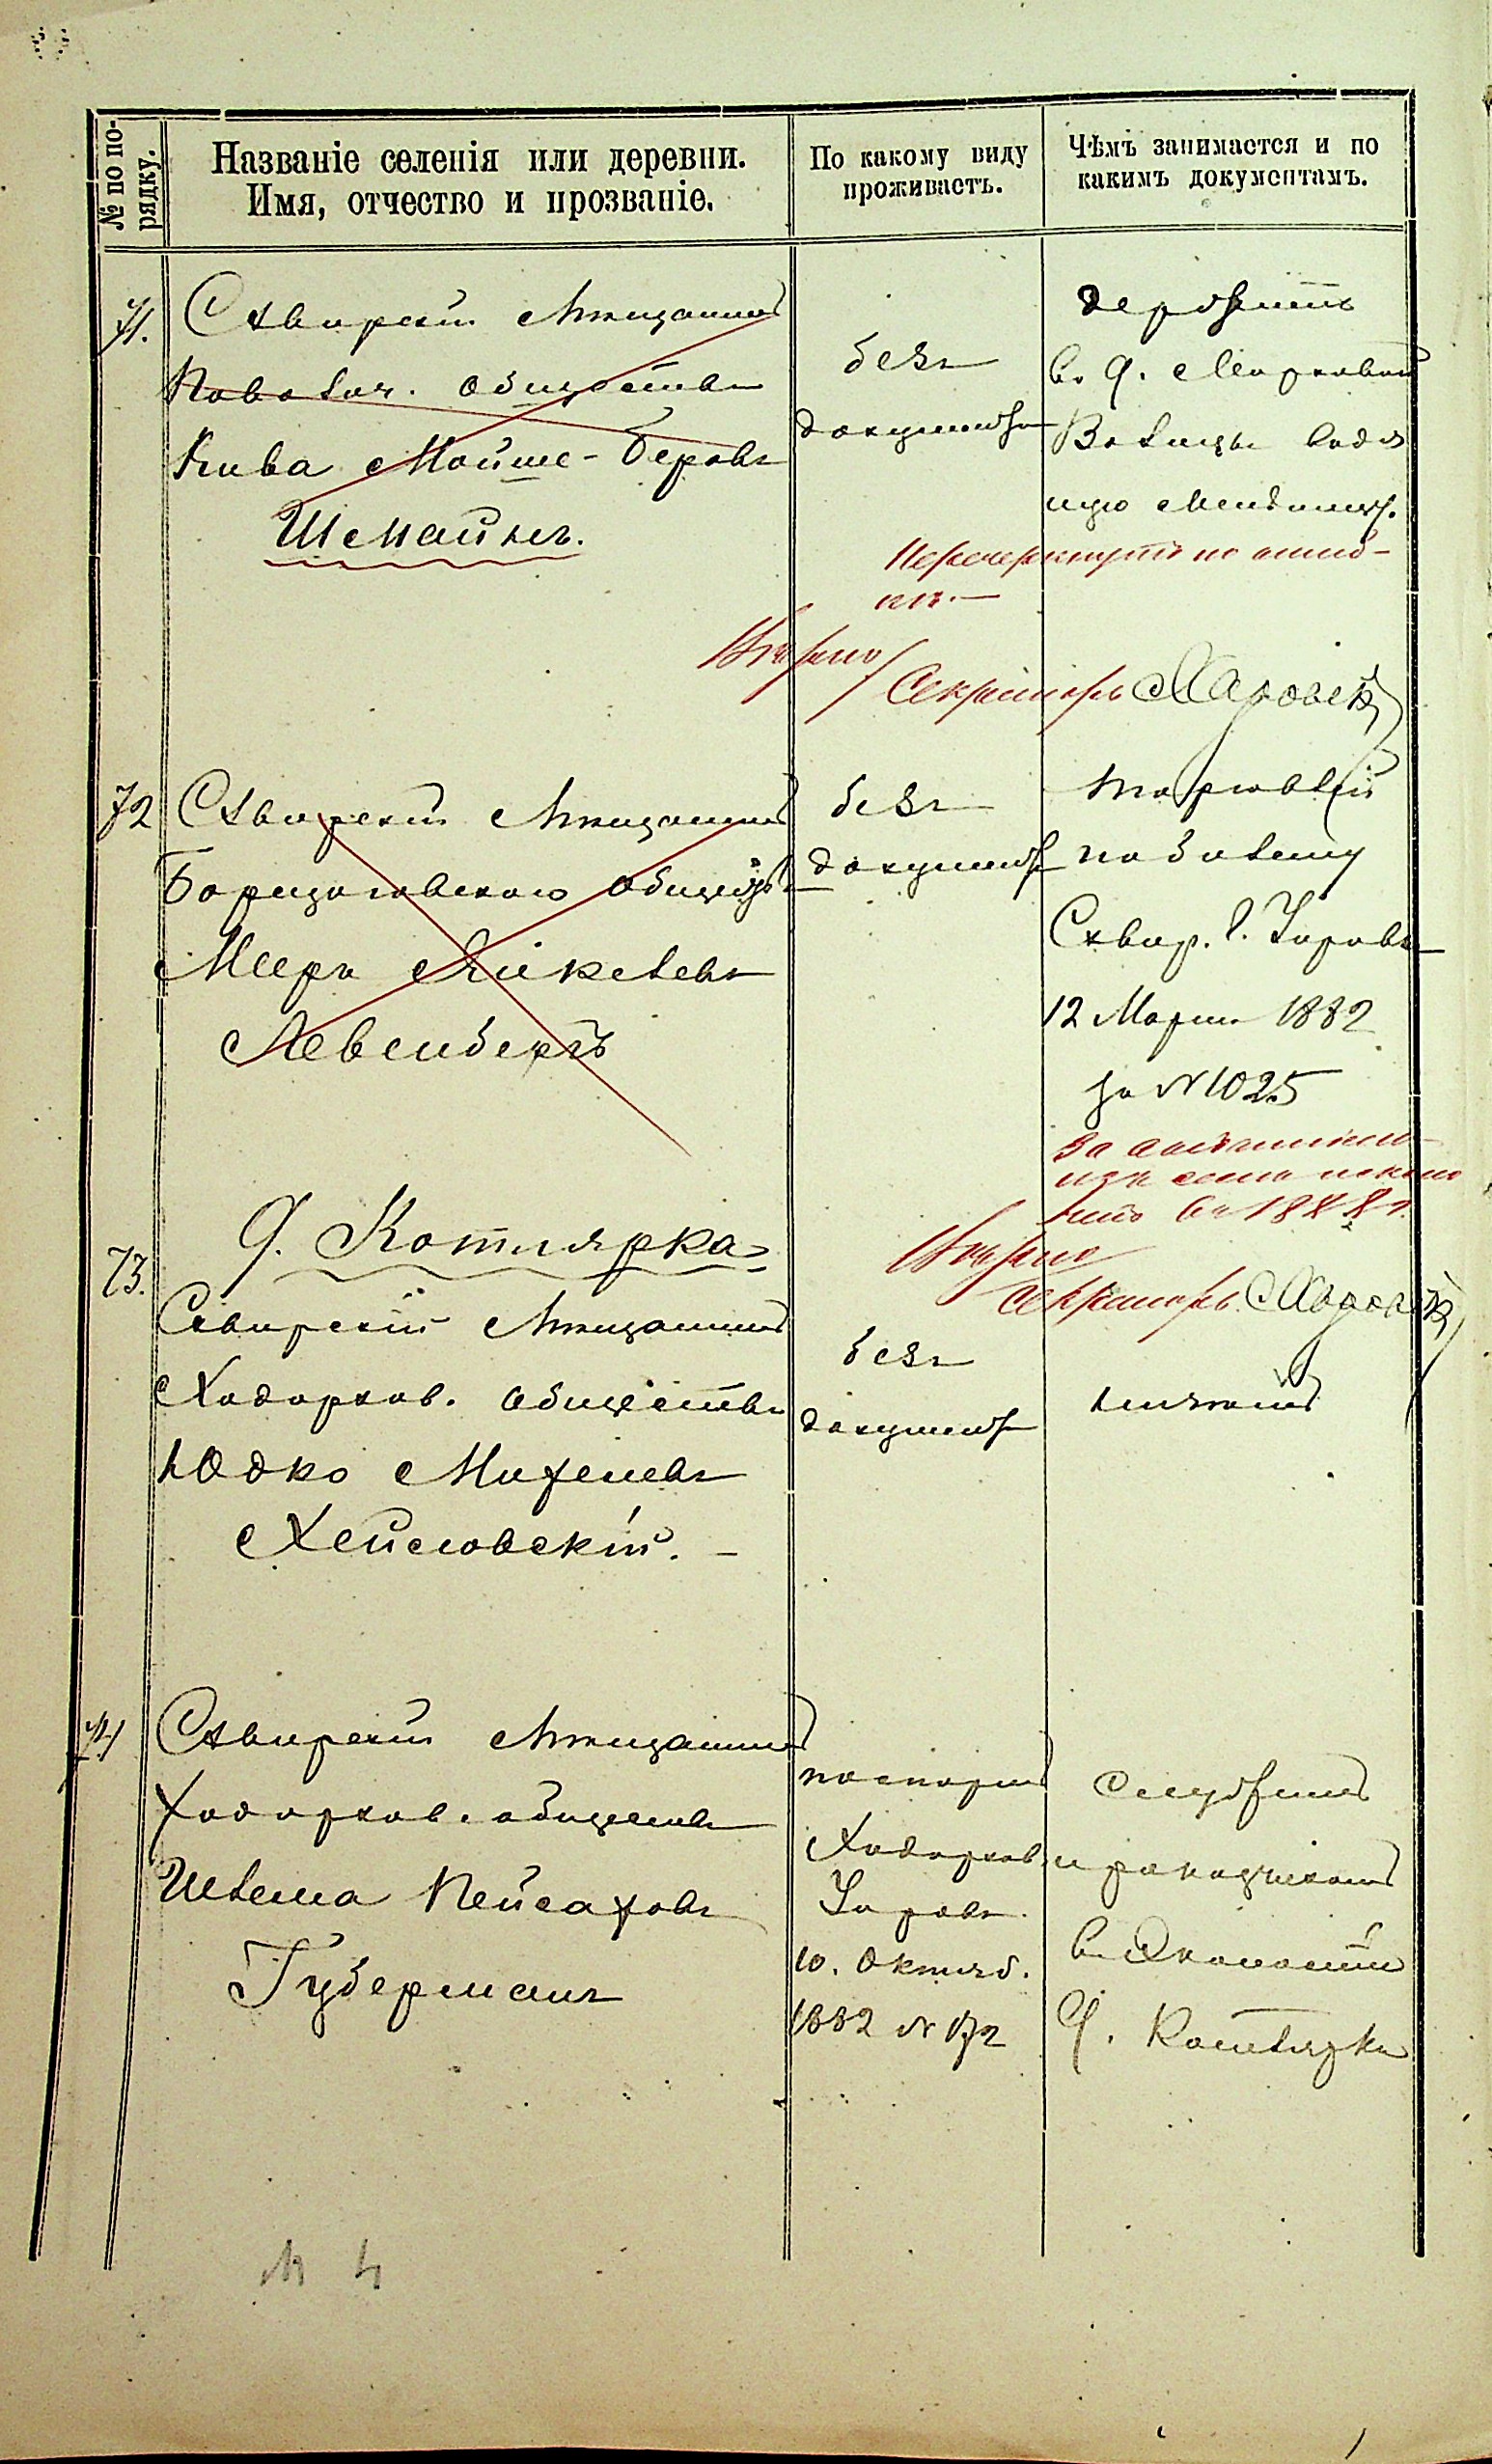 № по по-
рядку.
Названіе селенія или деревни.
Имя, отчество и прозваніе.
По какому виду
проживаетъ.
Чѣмъ занимается и по
какимъ документамъ.
71.
Сквирскій Мѣщанинъ
Паволоч. Общества
Кива Мойше-Беровъ
Шемайкъ.
безъ
документа
держитъ
въ д. Марковой
Волицы водя
ную мельницу.
Перечеркнуто по ошиб-
кѣ.—
Вѣрно
Секретарь
72
Сквирскій Мѣщанинъ
Борщаговскаго Общества
Мееръ Айкелевъ
Левенбергъ
безъ
документа
торговлей
по билету
Сквир. Г. Управы
12 Марта 1882
за №1025
изъ села
въ 1888 г.
Вѣрно
Секретарь
73.
д. Котлярка
Сквирскій Мѣщанинъ
Ходорков. Общества
Юдко Михелевъ
Хейсловскій.
безъ
документа
74
Сквирскій Мѣщанинъ
Ходорков. общества
Шлема Пейсаховъ
Губерманъ
паспортъ
Ходорков.
Управы.
10. Октяб.
1882 № 172
Служитъ
въ Экономіи
д. Котлярка